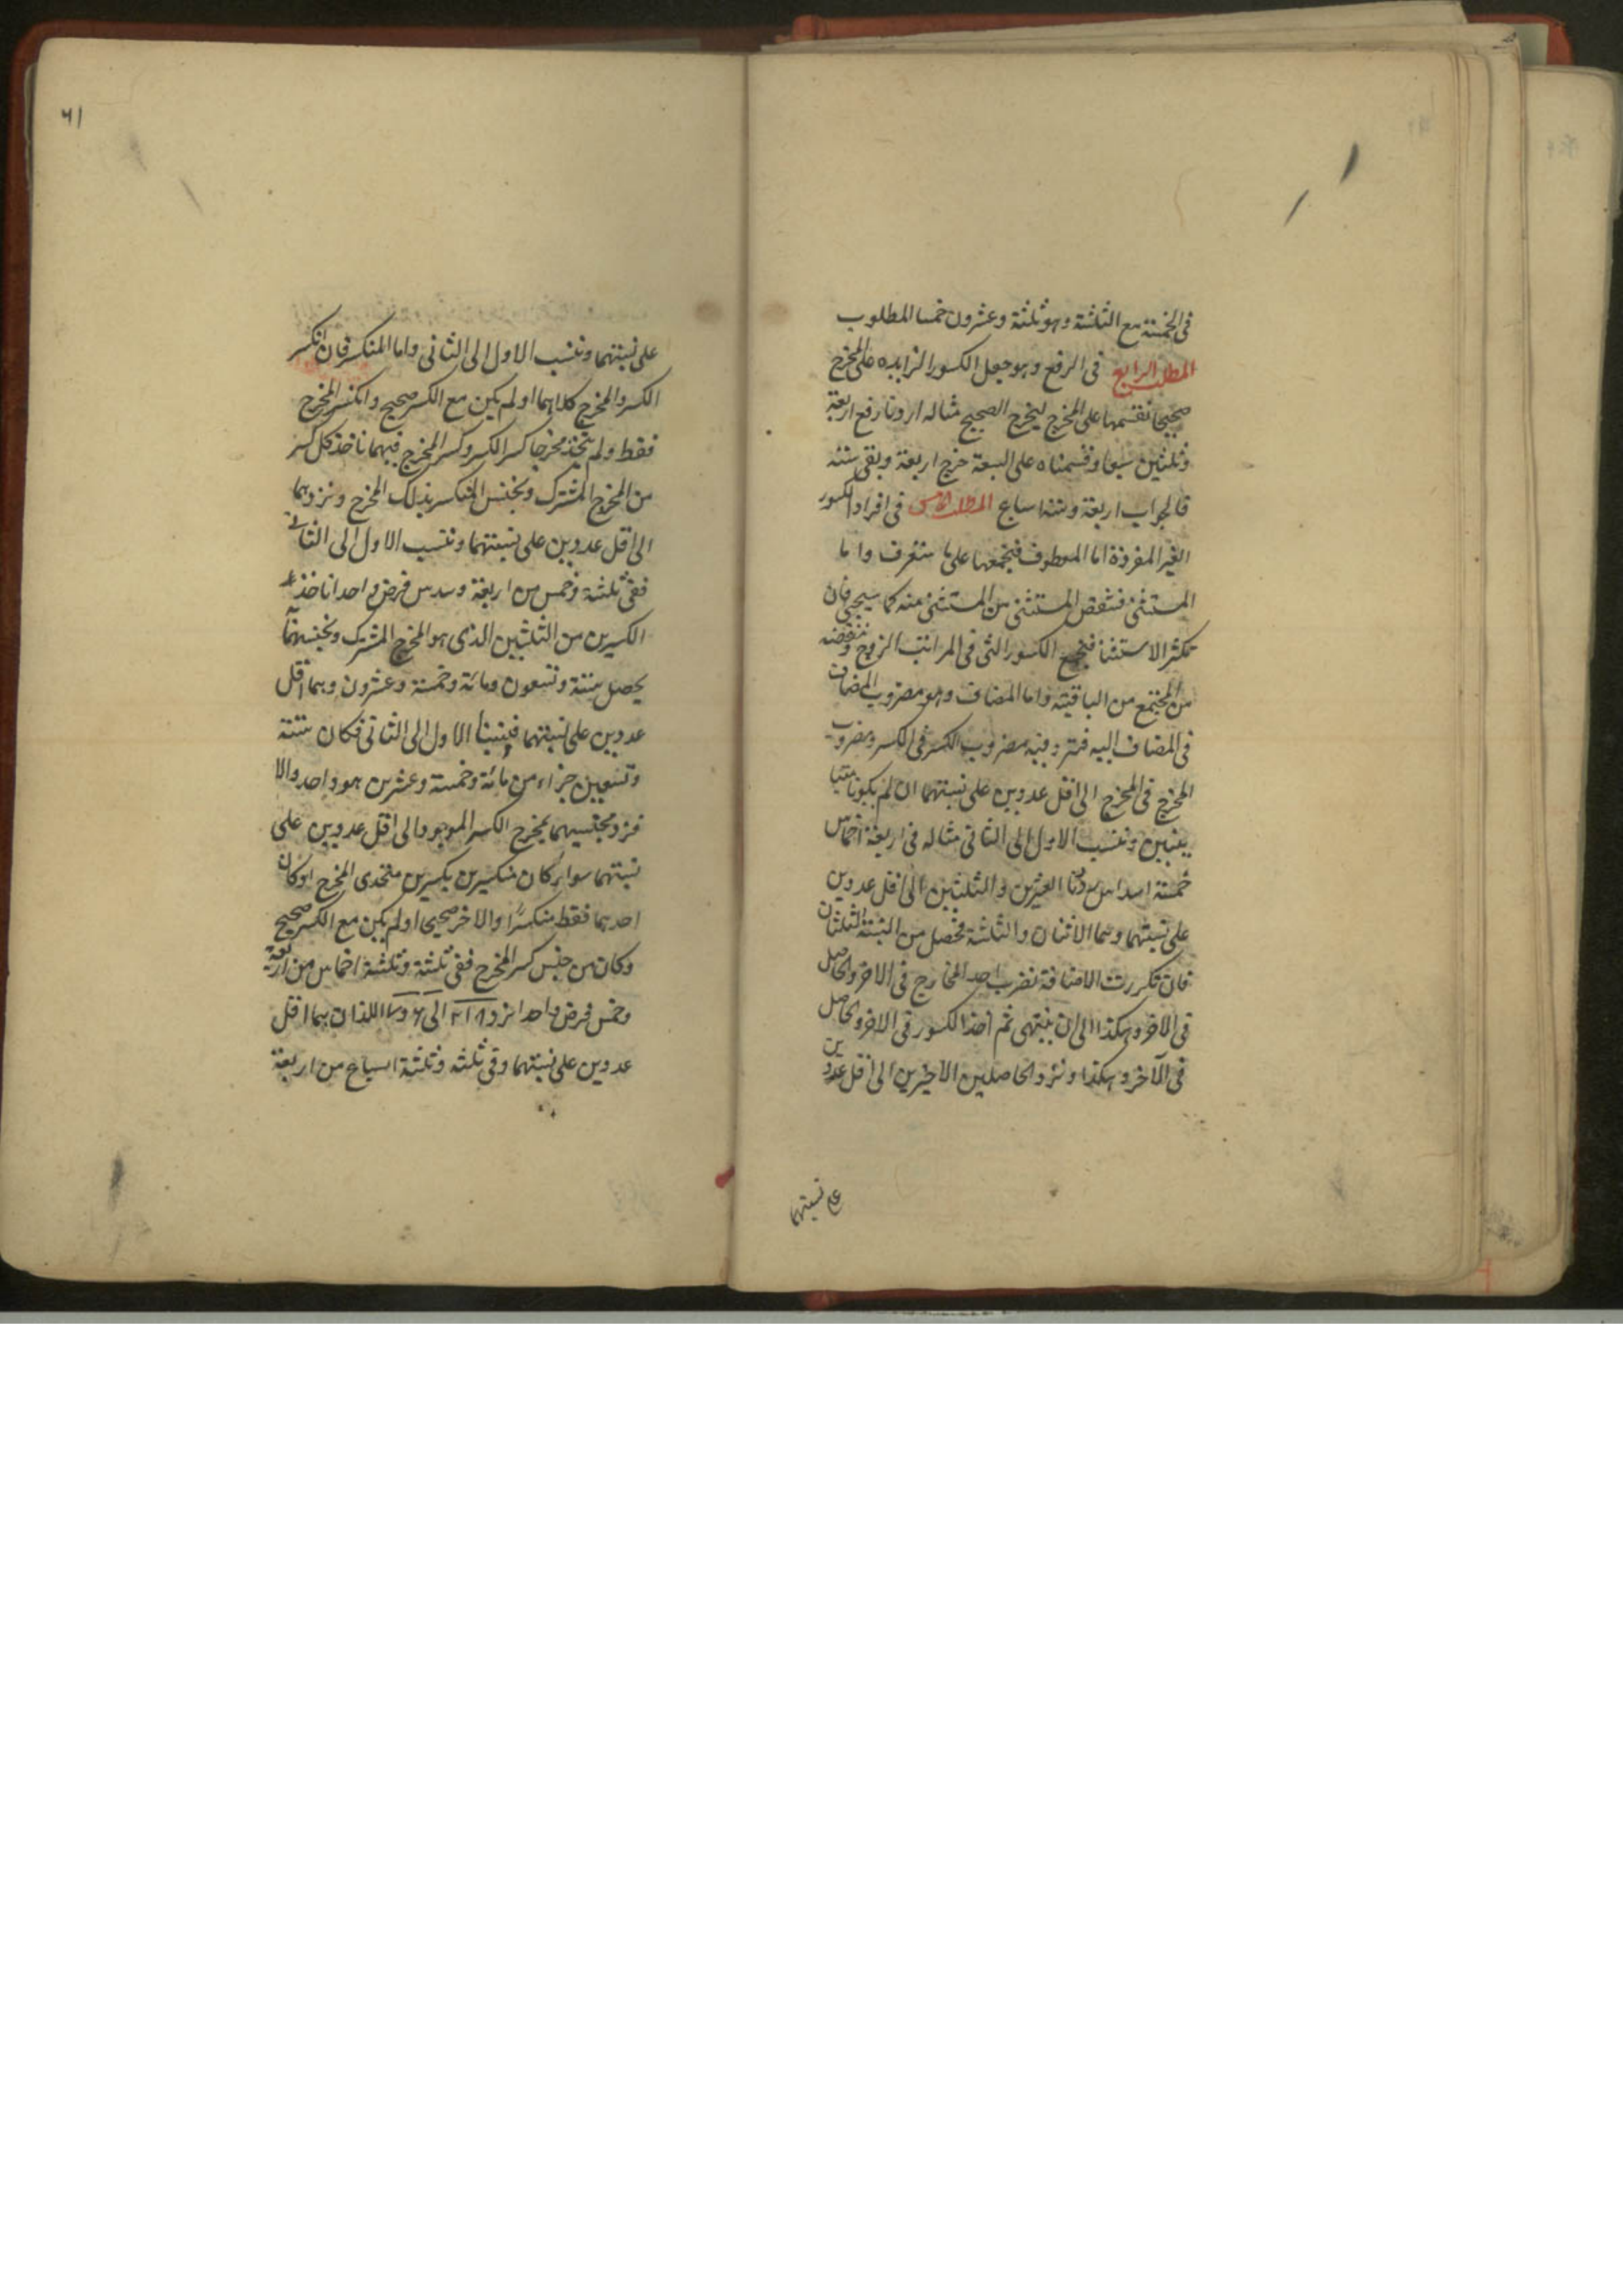 في الخمسة مع الثلثة وهو ثلثة وعشرون خمسا المطلوب
المطلب الرابع في الرفع وهو جعل الكسور الزايده على المخرج
صحيحا نقسمها على المخرج ليخرج الصحيح مثاله اردنا رفع اربعة
وثلثين سبعا وقسمناه على السبعة خرج اربعة وبقى ستة
فالجواب اربعة وستة اسباع المطلب الخامس في افراد الكسور
الغير المفردة اما المعطوف فبجمعها على ما ستعرف واما
المستثنى فبنقص المستثنى من المستثنى منه كما سيجي فان
تكثر الاستثنا فنجمع الكسور التي في المراتب الزوج وننقصه
من المجتمع من الباقية واما المضاف وهو مضروب المضاف
في المضاف اليه فترد فيه مضروب الكسر في الكسر ومضروب
المخرج في المخرج الى اقل عددين على نسبتهما ان لم يكونا متبا
ينين وننسب الاول الى الثاني مثاله في اربعة اخماس
خمسة اسداس العشرين والثلثين الى اقل عددين
على نسبتهما وهما الاثنان والثلثة فحصل من النسبة الثلثان
فان تكررت الاضافة نضرب احد المخارج في الاخر والحاصل
في الاخر وهكذا الى ان ينتهى ثم احذ الكسور في الاخر والحاصل
في الآخر وهكذا ونرد الحاصلين الاخيرين الى اقل عددين
على نسبتهما
٦١
على نسبتهما وننسب الاول الى الثاني واما المنكسر فان انكسر
الكسر والمخرج كلاهما او لم يكن مع الكسر صحيح وانكسر المخرج
فقط ولم يتحد مخرجا كسر الكسر وكسر المخرج فيهما ناخذ كل كسر
من المخرج المشترك ونجنس المنكسر بذلك المخرج ونردهما
الى اقل عددين على نسبتهما وننسب الاول الى الثاني
ففي ثلثة وخمس من اربعة وسدس فرض واحدا ناخذ
الكسرين من الثلثين الذى هو المخرج المشترك ونجنسهما
يحصل ستة وتسعون ومائة وخمسة وعشرون وهما اقل
عددين على نسبتهما فنسبنا الاول الى الثاني فكان ستة
وتسعين جزاء من مائة وخمسة وعشرين هو واحد والا
فنرد مجنسيهما بمخرج الكسر الموجود الى اقل عددين على
نسبتهما سواء كان منكسرين بكسرين متحدى المخرج او كان
احدهما فقط منكسرا والاخر صحيحا او لم يكن مع الكسر صحيح
وكان من جنس كسر المخرج ففي ثلثة وثلثة اخماس من اربعة
وخمس فرض واحدا نرد ١٨ ٢١ الى ٦ و ٧ اللذان هما اقل
عددين على نسبتهما وفي ثلثه وثلثة اسباع من اربعة